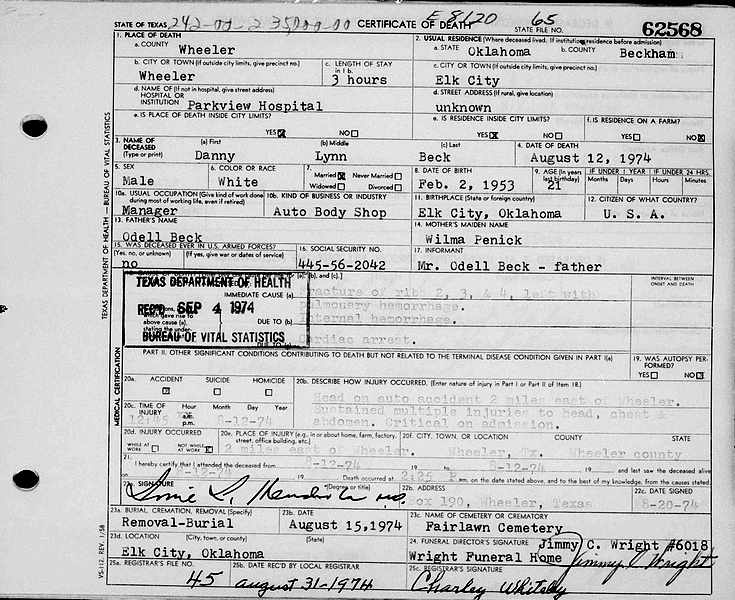 STATE OF TEXAS 242-07-2 35000-00 CERTIFICATE OF DEATH E8120 STATE FILE NO. 65 62568
1. PLACE OF DEATH 2. USUAL RESIDENCE (Where deceased lived. If institution, residence before admission)
a. COUNTY Wheeler a. STATE Oklahoma b. COUNTY Beckham
b. CITY OR TOWN (If outside city limits, give precinct no.) c. LENGTH OF STAY in 1 b. c. CITY OR TOWN (If outside city limits, give precinct no.)
Wheeler 3 hours Elk City
d. NAME OF (If not in hospital, give street address) HOSPITAL OR INSTITUTION Parkview Hospital d. STREET ADDRESS (If rural, give location) unknown
e. IS PLACE OF DEATH INSIDE CITY LIMITS? e. IS RESIDENCE INSIDE CITY LIMITS? f. IS RESIDENCE ON A FARM?
YES X NO YES X NO YES NO X
3. NAME OF DECEASED (Type or print) (a) First (b) Middle (c) Last 4. DATE OF DEATH
Danny Lynn Beck August 12, 1974
5. SEX 6. COLOR OR RACE 7. Married X Never Married 8. DATE OF BIRTH 9. AGE (In years last birthday) IF UNDER 1 YEAR IF UNDER 24 HRS.
Male White Widowed Divorced Feb. 2, 1953 21 Months Days Hours Minutes
10a. USUAL OCCUPATION (Give kind of work done during most of working life, even if retired) 10b. KIND OF BUSINESS OR INDUSTRY 11. BIRTHPLACE (State or foreign country) 12. CITIZEN OF WHAT COUNTRY?
Manager Auto Body Shop Elk City, Oklahoma U. S. A.
13. FATHER'S NAME 14. MOTHER'S MAIDEN NAME
Odell Beck Wilma Penick
15. WAS DECEASED EVER IN U.S. ARMED FORCES? 16. SOCIAL SECURITY NO. 17. INFORMANT
(Yes, no, or unknown) (If yes, give war or dates of service)
no 445-56-2042 Mr. Odell Beck - father
TEXAS DEPARTMENT OF HEALTH INTERVAL BETWEEN ONSET AND DEATH
IMMEDIATE CAUSE (a) Fracture of rib 2, 3, & 4, left with
REC'D SEP 4 1974 Pulmonary hemorrhage.
above cause (a), stating the under- DUE TO (b) Internal hemorrhage.
BUREAU OF VITAL STATISTICS Cardiac arrest.
PART II. OTHER SIGNIFICANT CONDITIONS CONTRIBUTING TO DEATH BUT NOT RELATED TO THE TERMINAL DISEASE CONDITION GIVEN IN PART I(a) 19. WAS AUTOPSY PERFORMED?
YES NO X
20a. ACCIDENT SUICIDE HOMICIDE 20b. DESCRIBE HOW INJURY OCCURRED. (Enter nature of injury in Part I or Part II of Item 18.)
Head on auto accident 2 miles east of Wheeler.
20c. TIME OF INJURY Hour Month Day Year Sustained multiple injuries to head, chest &
a.m. p.m. 8-12-74 abdomen. Critical on admission.
20d. INJURY OCCURRED 20e. PLACE OF INJURY (e.g., in or about home, farm, factory, street, office building, etc.) 20f. CITY, TOWN, OR LOCATION COUNTY STATE
WHILE AT WORK NOT WHILE AT WORK X 2 miles east of Wheeler. Wheeler, Tx. Wheeler county
21. I hereby certify that I attended the deceased from 8-12-74 19 to 8-12-74 19 and last saw the deceased alive
on 8-12-74 19 Death occurred at 2:25 P.m. on the date stated above, and to the best of my knowledge, from the causes stated.
22a. SIGNATURE (Degree or title) 22b. ADDRESS 22c. DATE SIGNED
Box 190, Wheeler, Texas 8-20-74
23a. BURIAL, CREMATION, REMOVAL (Specify) 23b. DATE 23c. NAME OF CEMETERY OR CREMATORY
Removal-Burial August 15, 1974 Fairlawn Cemetery
23d. LOCATION (City, town, or county) (State) 24. FUNERAL DIRECTOR'S SIGNATURE Jimmy C. Wright #6018
Elk City, Oklahoma Wright Funeral Home Jimmy C Wright
25a. REGISTRAR'S FILE NO. 25b. DATE REC'D BY LOCAL REGISTRAR 25c. REGISTRAR'S SIGNATURE
45 august 31-1974 Charley Whitely
TEXAS DEPARTMENT OF HEALTH — BUREAU OF VITAL STATISTICS
MEDICAL CERTIFICATION
VS-112, REV. 1/58